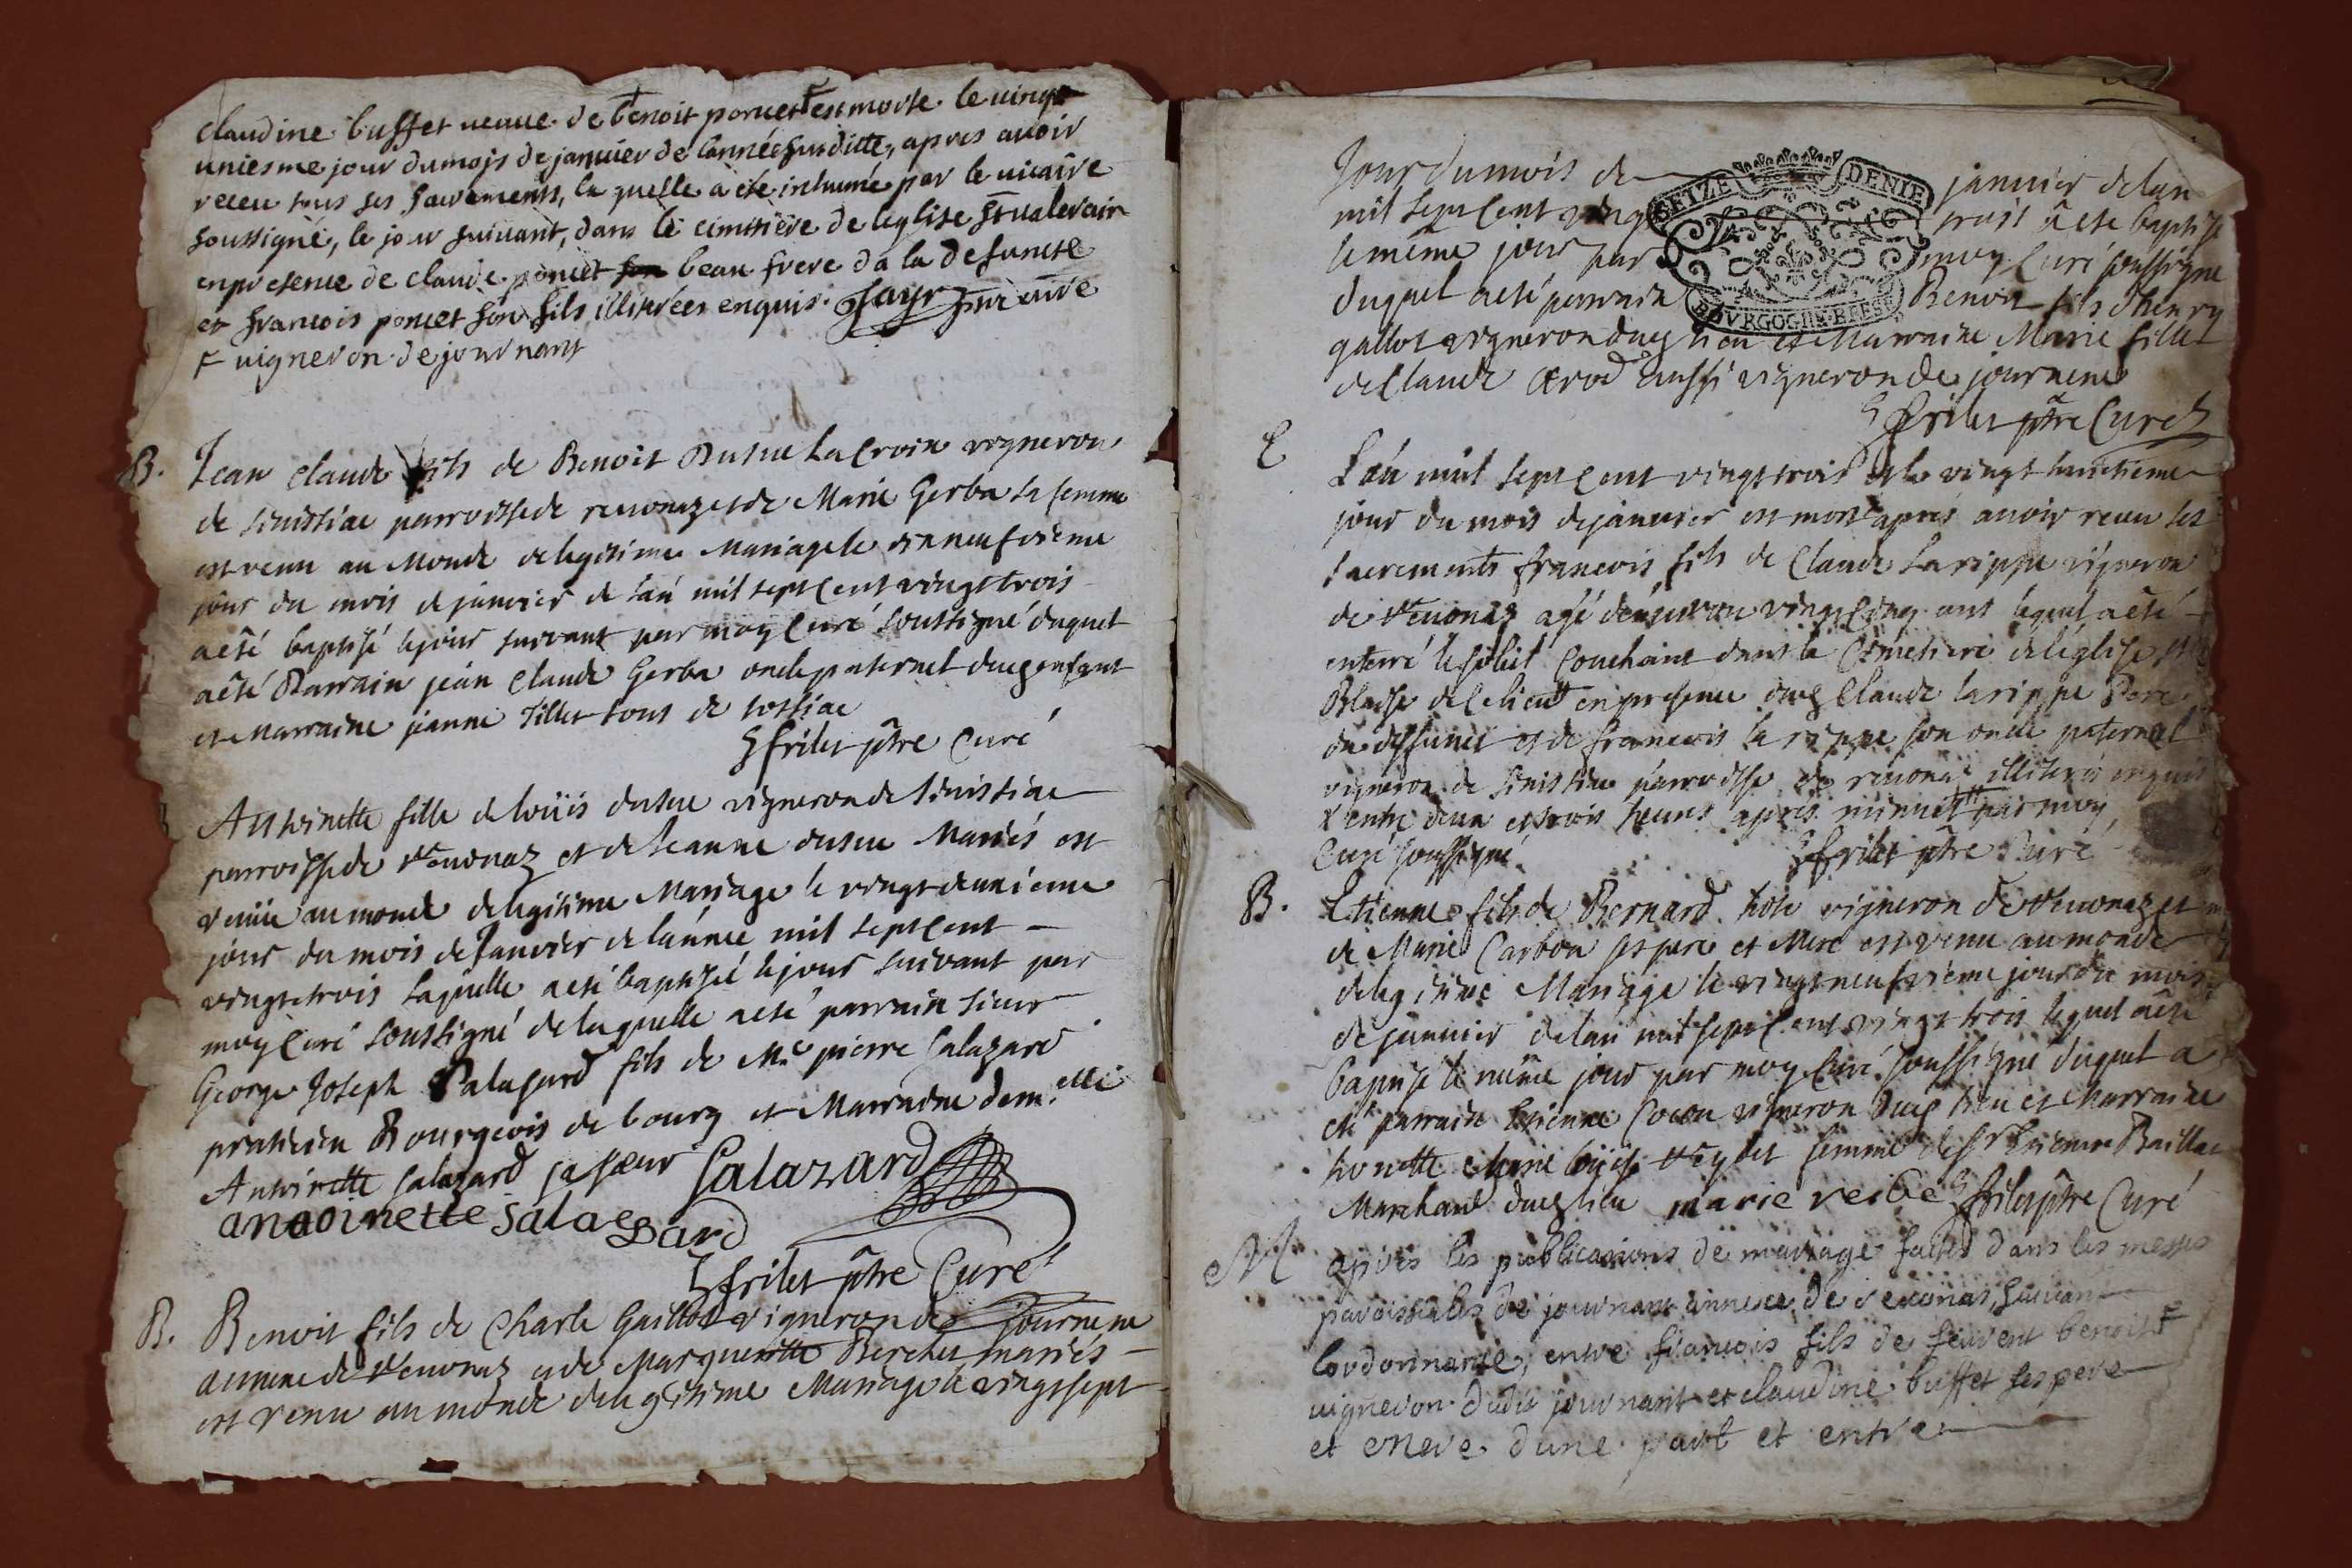 claudine buffet veuve de benoit poncet F est morte le vingt
uniesme jour du mojs de janvier de lannée susditte, apres avoir
receu tous ses sacrements, la quelle a été inhumé par le vicaire
soussigné, le jour suivant, dans le cimitière de leglise St valevain
en presence de claude poncet beau frere d a la defuncte
et francois poncet son fils illitérées enquis. vicaire
F vigneron de journant
B. Jean Claude fils de Benoit Dusue La Croix vigneron
de sinissiac parroisse de revonaz et de Marie Gerba sa femme
est venu au Monde de legitime Mariage le dixneufvieme
jour du mois de janvier de l'an mil sept cent vingt trois
a êté baptisé le jour suivant par moy Curé soussigné duquel
a êté Parrain jean Claude Gerba oncle paternel duq enfant
et Marraine jeanne Tillet tous de
frilet ptre Curé
Antoinette fille de loüis dusue vigneron de sinissiac
parroisse de revonaz et de Jeanne dusue Mariés est
venüe au monde de legitime Mariage le vingtdeuxieme
jour du mois de Janvier de l'année mil sept cent
vingt trois laquelle a eté baptisée le jour suivant par
moy Curé soussigné de laquelle a eté parrain sieur
George Joseph Salazard fils de Me pierre Salazard
praticien Bourgeois de bourg et Marraine dem.elle
Antoinette salazard sa sœur Salazard
antoinette salaezard
frilet ptre Curé
B. Benoit fils de Charle Gaillot vigneron de journene
annexe de revonaz et de Margueritte Berchet mariés
est venu au monde de legitime Mariage le vingt sept
Jour du mois de janvier de l'an
mil sept cent vingt trois a eté baptisé
le même jour par moy Curé soussigné
duquel a eté parrain Benoit fils d'henry
gallot vigneron duq lieu et Marraine Marie fille
de Claude aussi vigneron de journene
frilet ptre Curé
SEIZE DENIE
BOVRGOGNE BRESSE
E L'an mil sept cent vingt trois et le vingt huictieme
jour du mois de janvier est mort apres avoir receu les
sacrements francois fils de Claude Larippe vigneron
de revonaz agé denviron vingt cinq ans lequel a êté
enterré le soleil Couchant dans le Cimetiere de l'église St
Blaise en presence duq Claude larippe Pere
du deffunct et de francois la rippe son oncle paternel
vigneron de sinissiac parroisse de revonaz illiteré enquis
X entre deux et trois heures apres minuit par moy
Curé soussigné. frilet ptre Curé
B. Etienne fils de Bernard vigneron de revonaz et
de Marie Carbon ses pere et Mere est venu au monde
de legitime Mariage le vingt neufvieme jour du mois
de janvier de l'an mil sept cent vingt trois lequel a êté
baptisé le même jour par moy Curé soussigné duquel a
eté parrain Etienne Cocon vigneron duq lieu et Marraine
honette Marie loüise femme de Sr Etienne Baillat
Marchand duq lieu marie frilet ptre Curé
M apres les publications de mariage faites dans les messes
paroissiales de journant annexe de revonas, suivant
l'ordonnance, entre francois fils de feu benoit F
vigneron dudit journant et claudine buffet ses pere
et mere. dune part et entre